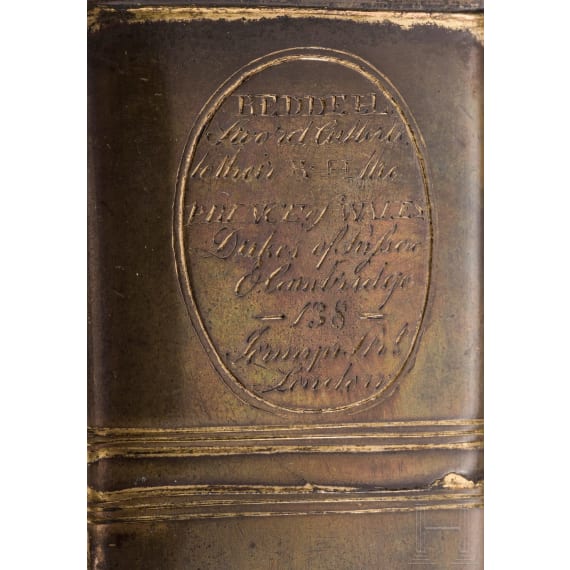 BEDDELL
Sword Cutler
to their R H the
PRINCE of WALES
Dukes of Sussex
& Cambridge
138
Jermyn Str
London